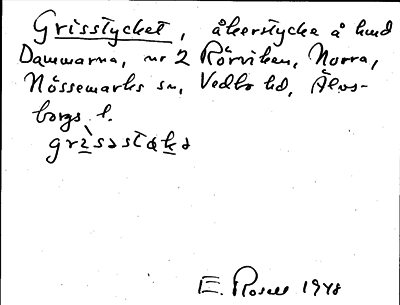 Grisstycket, åkerstycke å hmd
Dammarna, nr 2 Rörviken, Norra,
Nössemarks sn, Vedbo hd, Älvs-
borgs l.
grìsəstəkə
E. Rosell 1948